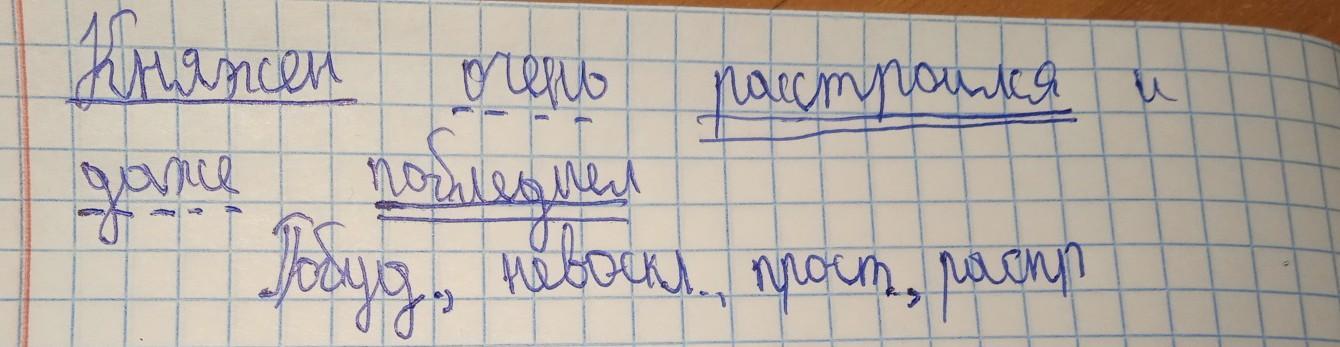 Княжен очень расстроился и
даже побледнел
Побуд., невоскл., прост., распр